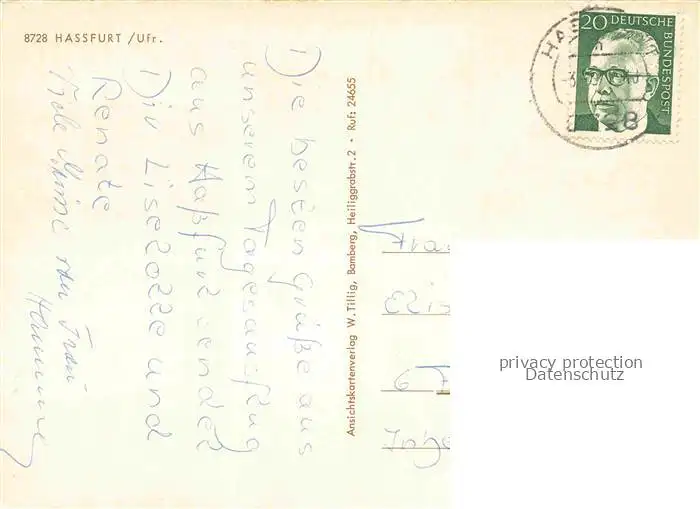 8728 HASSFURT /Ufr.
Die besten Grüße aus
unserem Tagesausflug
aus Haßfurt sendet
Dir Liselotte und
Renate
Ansichtskartenverlag W. Tillig, Bamberg, Heiliggrabstr. 2 · Ruf: 24655
20 DEUTSCHE
BUNDESPOST
28
Frau
6
privacy protection
Datenschutz